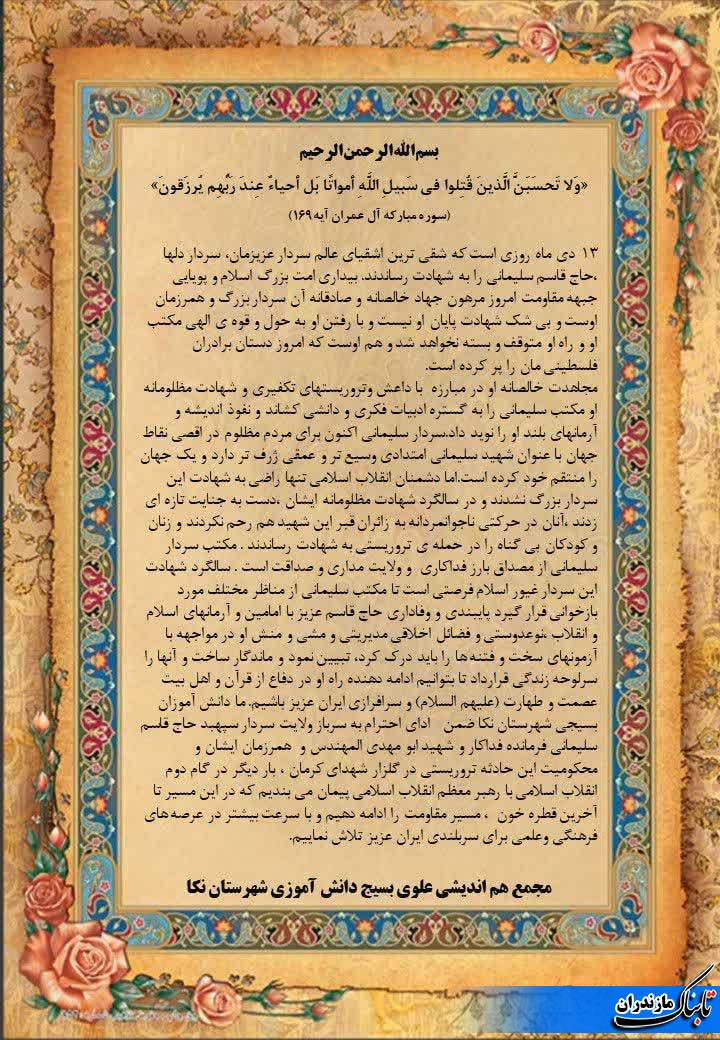 بسم‌الله‌الرحمن‌الرحیم
«وَلا تَحسَبَنَّ الَّذینَ قُتِلوا فی سَبیلِ اللَّهِ أمواتًا بَل أحیاءٌ عِندَ رَبِّهِم یُرزَقونَ»
(سوره مبارکه آل عمران آیه ۱۶۹)
۱۳ دی ماه روزی است که شقی ترین اشقیای عالم سردار عزیزمان، سردار دلها
،حاج قاسم سلیمانی را به شهادت رساندند، بیداری امت بزرگ اسلام و پویایی
جبهه مقاومت امروز مرهون جهاد خالصانه و صادقانه آن سردار بزرگ و همرزمان
اوست و بی شک شهادت پایان او نیست و با رفتن او به حول و قوه ی الهی مکتب
او و راه او متوقف و بسته نخواهد شد و هم اوست که امروز دستان برادران
فلسطینی مان را پر کرده است.
مجاهدت خالصانه او در مبارزه با داعش وتروریستهای تکفیری و شهادت مظلومانه
او مکتب سلیمانی را به گستره ادبیات فکری و دانشی کشاند و نفوذ اندیشه و
آرمانهای بلند او را نوید داد.سردار سلیمانی اکنون برای مردم مظلوم در اقصی نقاط
جهان با عنوان شهید سلیمانی امتدادی وسیع تر و عمقی ژرف تر دارد و یک جهان
را منتقم خود کرده است.اما دشمنان انقلاب اسلامی تنها راضی به شهادت این
سردار بزرگ نشدند و در سالگرد شهادت مظلومانه ایشان ،دست به جنایت تازه ای
زدند ،آنان در حرکتی ناجوانمردانه به زائران قبر این شهید هم رحم نکردند و زنان
و کودکان بی گناه را در حمله ی تروریستی به شهادت رساندند . مکتب سردار
سلیمانی از مصداق بارز فداکاری و ولایت مداری و صداقت است . سالگرد شهادت
این سردار غیور اسلام فرصتی است تا مکتب سلیمانی از مناظر مختلف مورد
بازخوانی قرار گیرد پایبندی و وفاداری حاج قاسم عزیز با امامین و آرمانهای اسلام
و انقلاب ،نوعدوستی و فضائل اخلاقی مدیریتی و مشی و منش او در مواجهه با
آزمونهای سخت و فتنه ها را باید درک کرد، تبیین نمود و ماندگار ساخت و آنها را
سرلوحه زندگی قرارداد تا بتوانیم ادامه دهنده راه او در دفاع از قرآن و اهل بیت
عصمت و طهارت (علیهم السلام) و سرافرازی ایران عزیز باشیم. ما دانش آموزان
بسیجی شهرستان نکا ضمن ادای احترام به سرباز ولایت سردار سپهبد حاج قاسم
سلیمانی فرمانده فداکار و شهید ابو مهدی المهندس و همرزمان ایشان و
محکومیت این حادثه تروریستی در گلزار شهدای کرمان ، بار دیگر در گام دوم
انقلاب اسلامی با رهبر معظم انقلاب اسلامی پیمان می بندیم که در این مسیر تا
آخرین قطره خون ، مسیر مقاومت را ادامه دهیم و با سرعت بیشتر در عرصه های
فرهنگی وعلمی برای سربلندی ایران عزیز تلاش نماییم.
مجمع هم اندیشی علوی بسیج دانش آموزی شهرستان نکا
تابناک مازندران